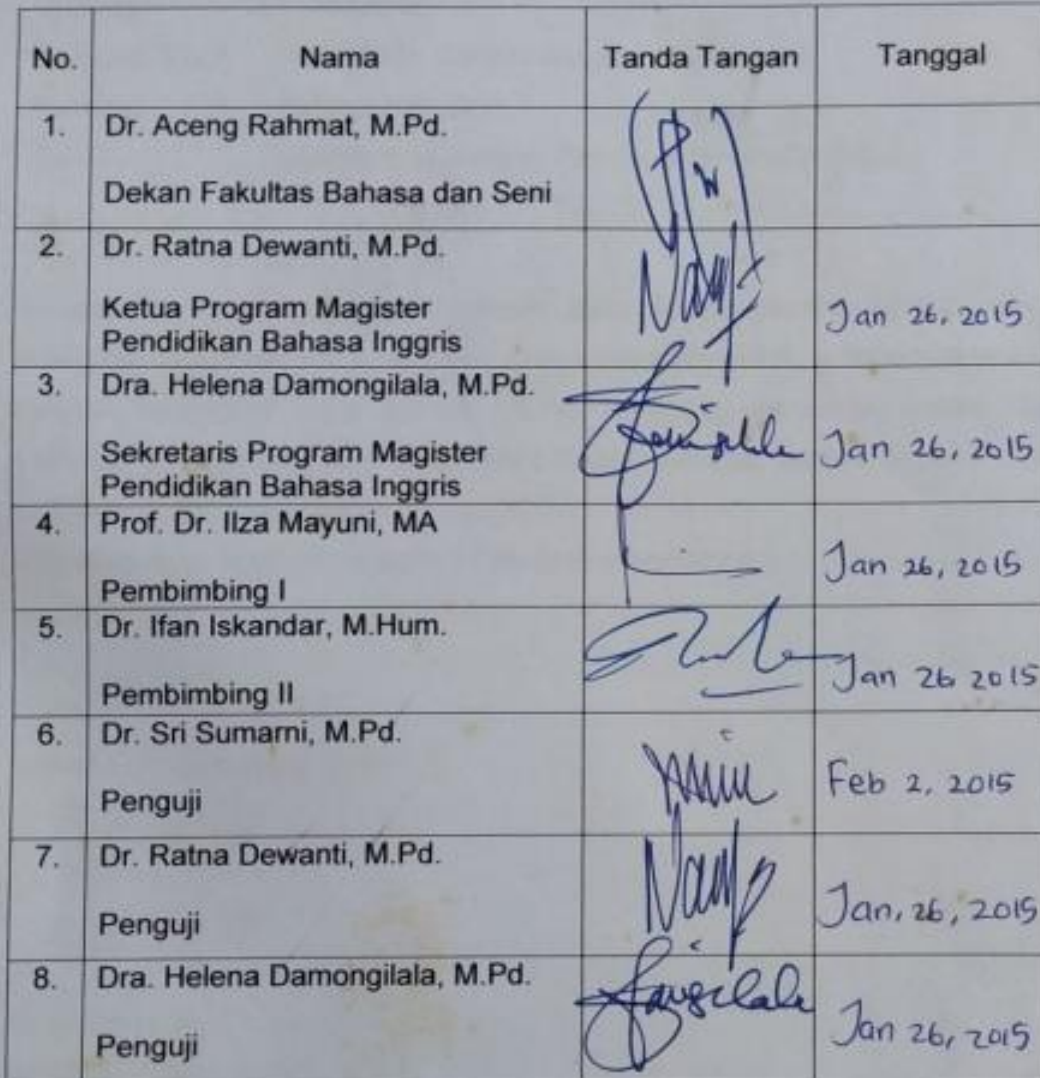 No. Nama Tanda Tangan Tanggal
1. Dr. Aceng Rahmat, M.Pd.
Dekan Fakultas Bahasa dan Seni
2. Dr. Ratna Dewanti, M.Pd.
Ketua Program Magister
Pendidikan Bahasa Inggris
Jan 26, 2015
3. Dra. Helena Damongilala, M.Pd.
Sekretaris Program Magister
Pendidikan Bahasa Inggris
Jan 26, 2015
4. Prof. Dr. Ilza Mayuni, MA
Pembimbing I
Jan 26, 2015
5. Dr. Ifan Iskandar, M.Hum.
Pembimbing II
Jan 26 2015
6. Dr. Sri Sumarni, M.Pd.
Penguji
Feb 2, 2015
7. Dr. Ratna Dewanti, M.Pd.
Penguji
Jan, 26, 2015
8. Dra. Helena Damongilala, M.Pd.
Penguji
Jan 26, 2015